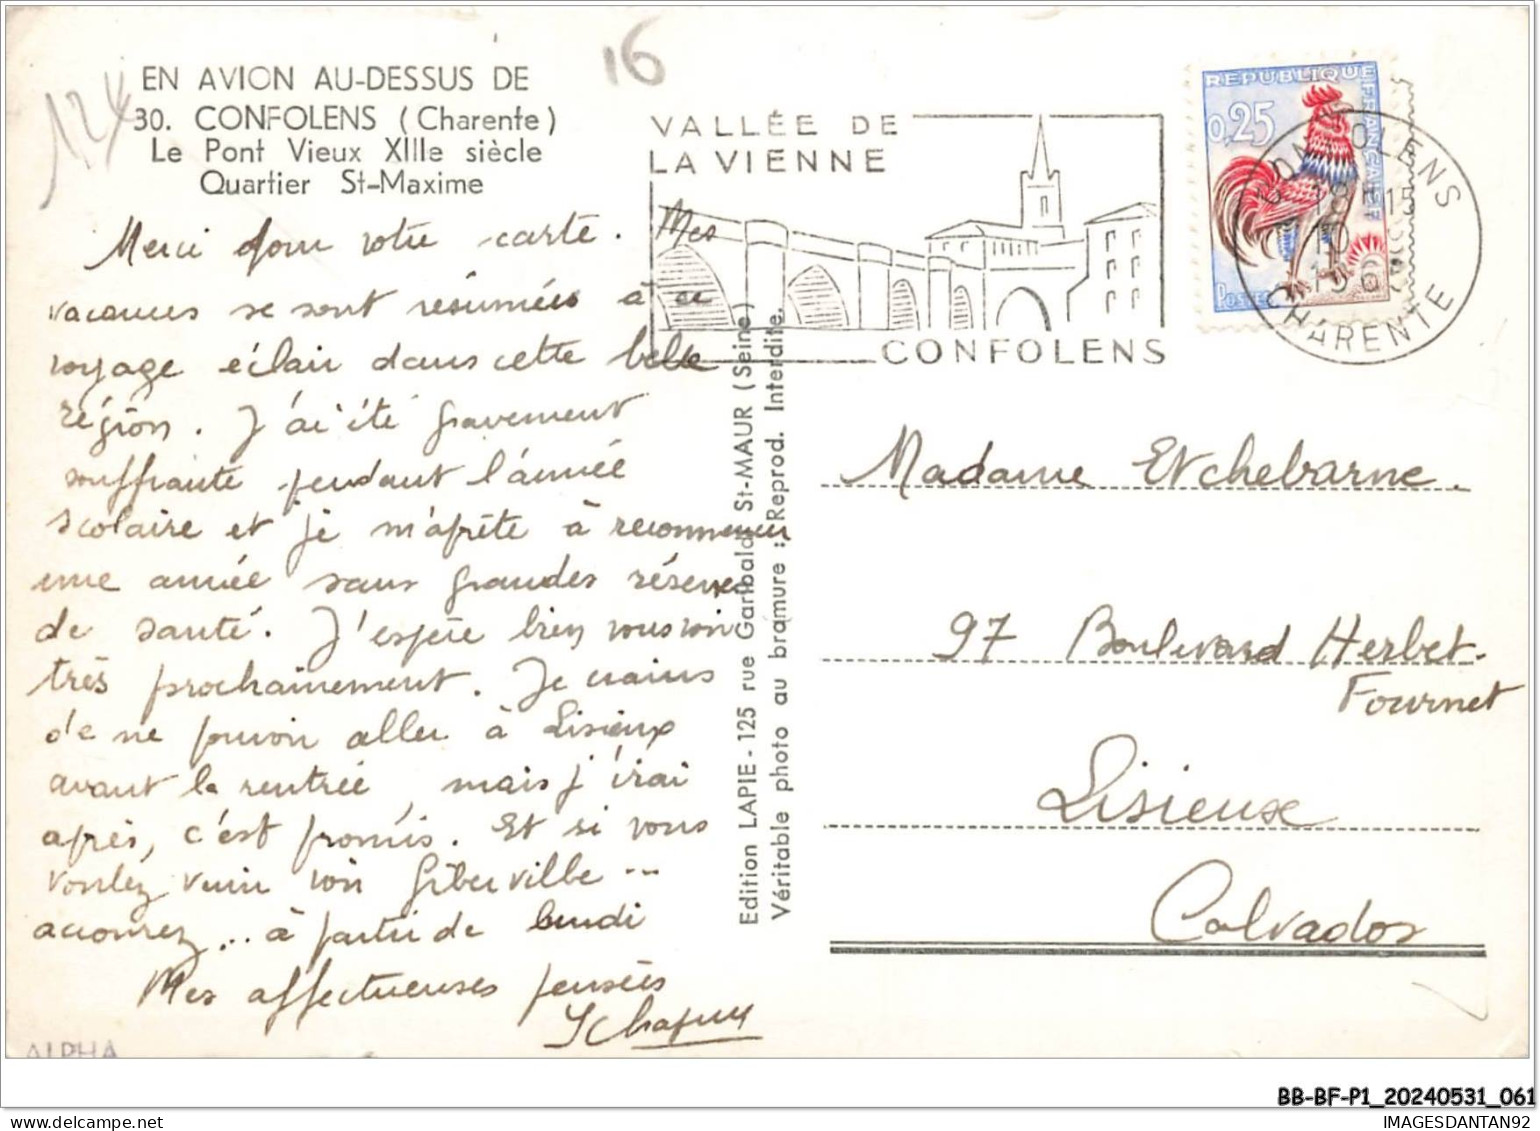 EN AVION AU-DESSUS DE
30. CONFOLENS (Charente)
Le Pont Vieux XIIIe siècle
Quartier St-Maxime
124
16
VALLÉE DE
LA VIENNE
CONFOLENS
RÉPUBLIQUE FRANÇAISE
0,25
POSTES
CONFOLENS
18H15
CHARENTE
Merci pour votre carte. Mes
vacances se sont résumées à ce
voyage éclair dans cette belle
région. J'ai été gravement
souffrante pendant l'année
scolaire et je m'aprète à recommencer
une année sans grandes réserves
de santé. J'espère bien vous voir
très prochainement. Je crains
de ne pouvoir aller à Lisieux
avant la rentrée, mais j'irai
après, c'est promis. Et si vous
voulez venir voir Giberville...
accourez... à partir de lundi
Mes affectueuses pensées
Edition LAPIE - 125 rue Garibaldi St-MAUR (Seine)
Véritable photo au bromure : Reprod. Interdite.
Madame Etchebarne.
97 Boulevard Herbet-
Fournet
Lisieux
Calvados
ALPHA
BB-BF-P1_20240531_061
IMAGESDANTAN92